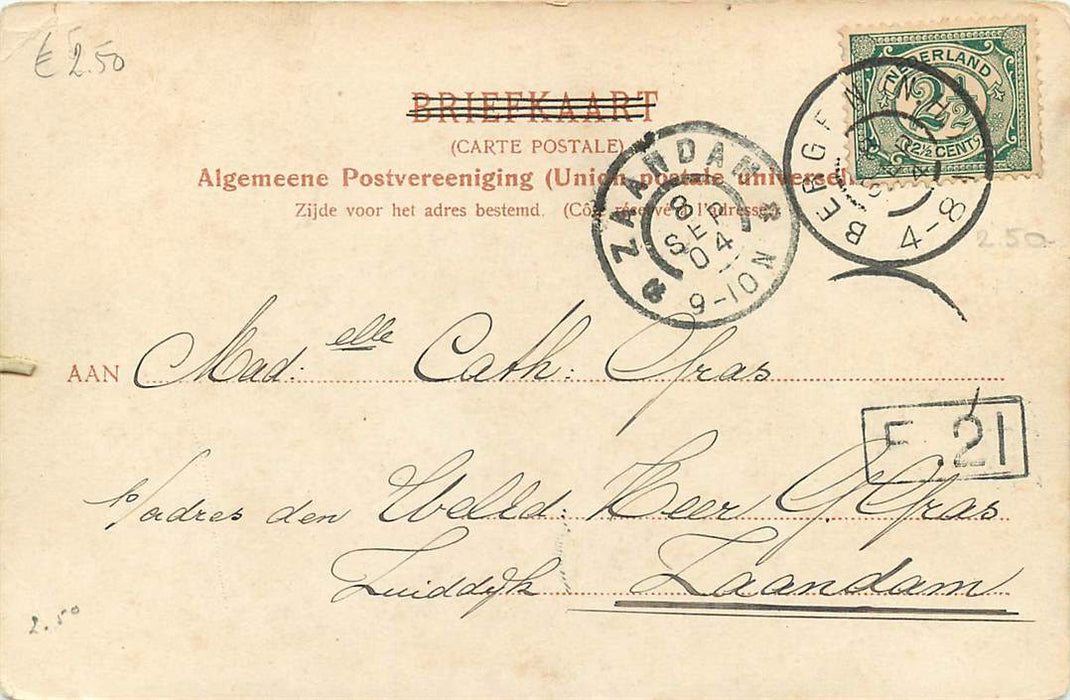 € 2.50
BRIEFKAART
(CARTE POSTALE)
Algemeene Postvereeniging (Union postale universelle
Zijde voor het adres bestemd. (Côté réservé à l'adresse)
NEDERLAND
2½
(2½ CENT)
BERGEN N.H.
4-8
ZAANDAM
8
SEP
04
9-10N
2.50
AAN Mad.elle Cath: Gras
F 21
p/adres den WelEd: Heer G. Gras
Zuiddijk Zaandam
2.50